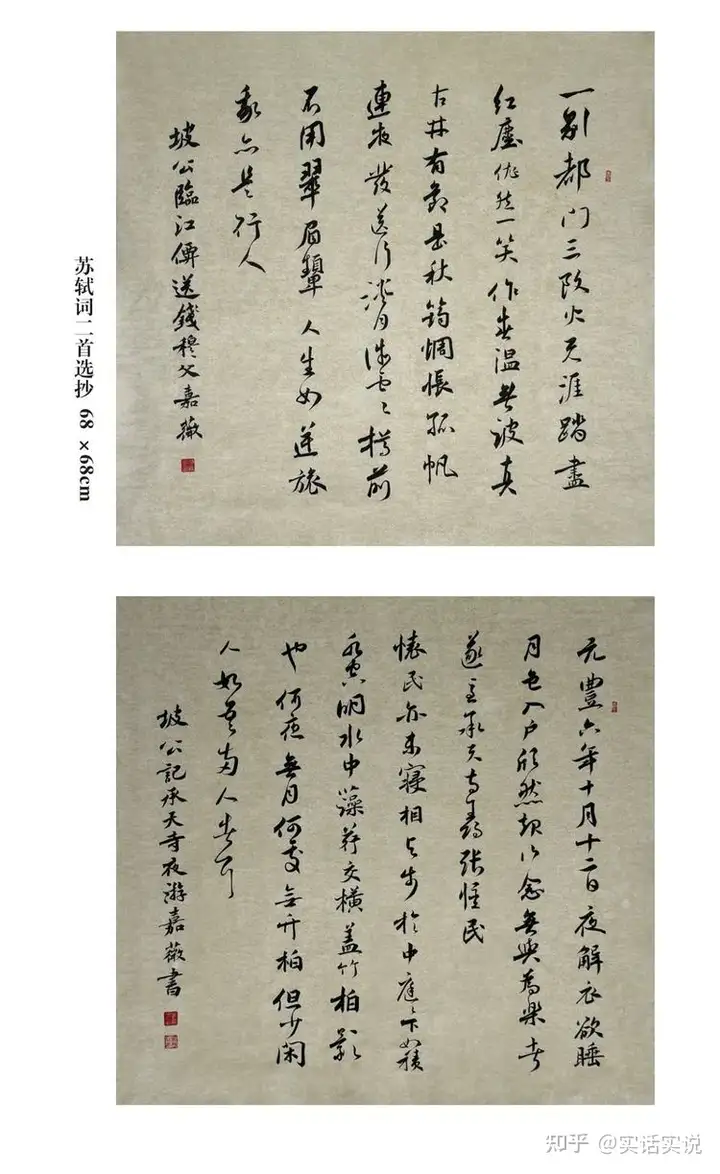 苏轼词二首选抄 68×68cm
一別都门三改火天涯踏盡
红塵依然一笑作春温無波真
古井有節是秋筠惆悵孤帆
連夜發送行淡月微雲〻樽前
不用翠眉顰人生如逆旅
我亦是行人
坡公臨江僊送錢穆父嘉薇
元豐六年十月十二日夜解衣欲睡
月色入户欣然起行念無與為樂者
遂至承天寺尋张懷民
懷民亦未寢相与步於中庭〻下如積
水空明水中藻荇交横盖竹柏影
也何夜無月何處無竹柏但少闲
人如吾两人者耳
坡公記承天寺夜游嘉薇書
知乎 @实话实说